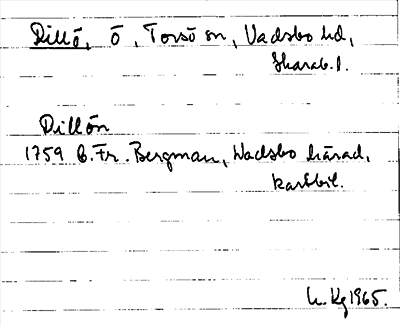 Dillö, ö, Torsö sn, Vadsbo hd,
Skarab. l.
Dillön
1759 C. Fr. Bergman, Wadsbo härad,
kartbil.
L. Kg 1965.